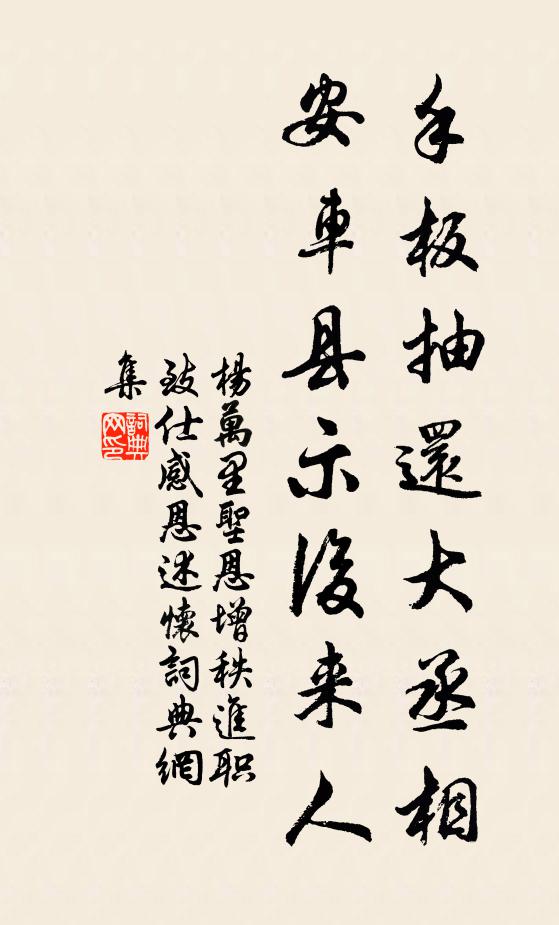 手板抽還大丞相
安車县示後来人
楊萬里聖恩增秩進职
致仕感恩述懷詞典網
集
詞典网印